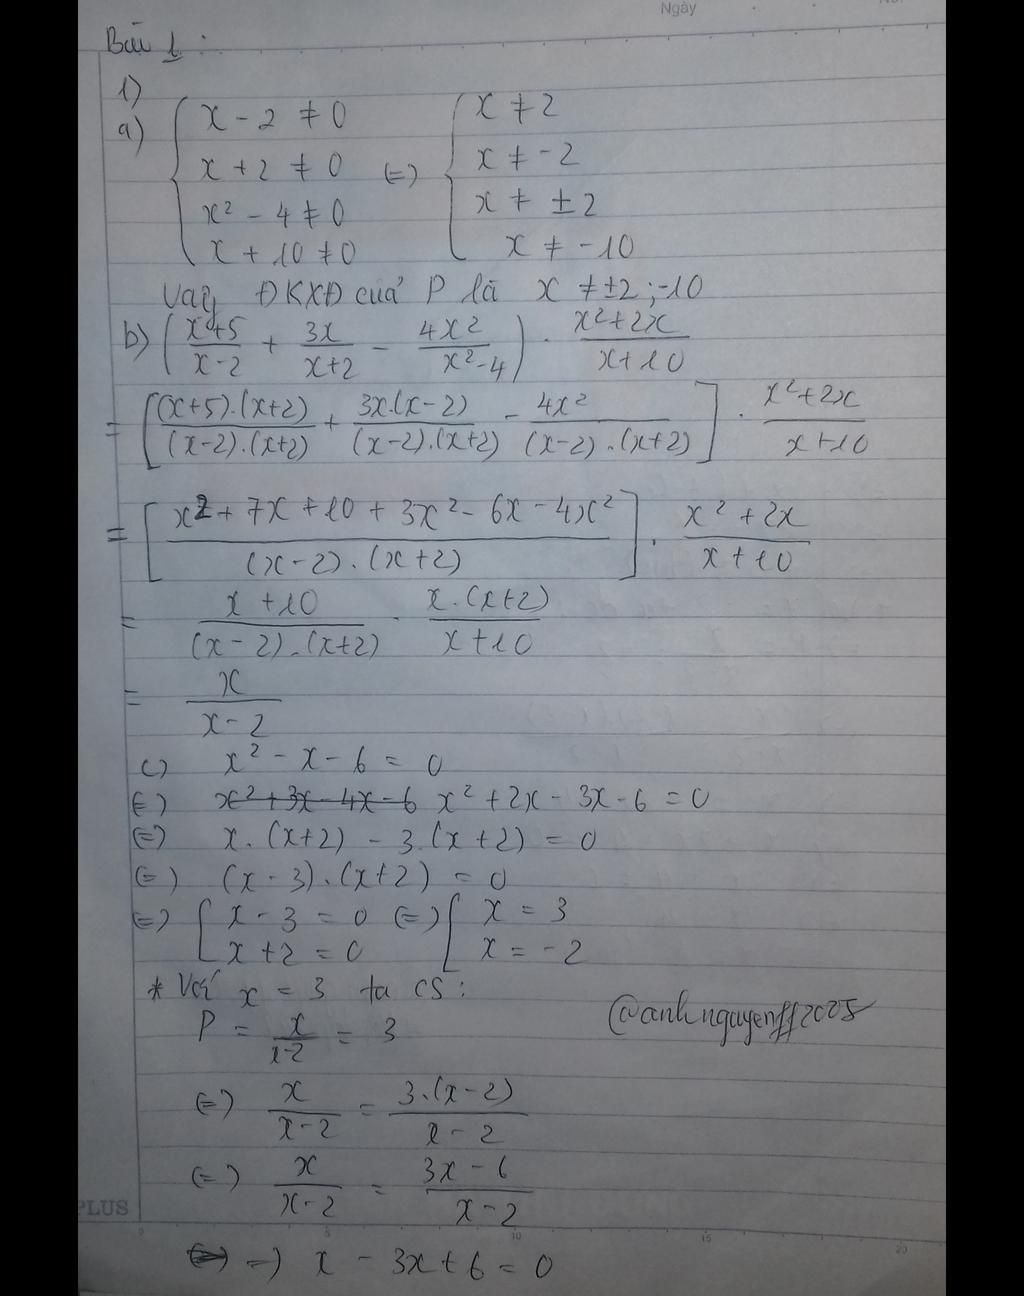 Ngày
Bài 1 :
1)
a) { x - 2 ≠ 0 { x ≠ 2
x + 2 ≠ 0 (=) x ≠ -2
x² - 4 ≠ 0 x ≠ ±2
x + 10 ≠ 0 x ≠ -10
Vậy ĐKXĐ của P là x ≠ ±2 ; -10
b) ( (x+5)/(x-2) + 3x/(x+2) - 4x²/(x²-4) ) . (x²+2x)/(x+10)
= [ ((x+5).(x+2))/((x-2).(x+2)) + (3x.(x-2))/((x-2).(x+2)) - 4x²/((x-2).(x+2)) ] . (x²+2x)/(x+10)
= [ (x² + 7x + 10 + 3x² - 6x - 4x²)/((x-2).(x+2)) ] . (x²+2x)/(x+10)
= (x+10)/((x-2).(x+2)) . (x.(x+2))/(x+10)
= x/(x-2)
c) x² - x - 6 = 0
(=) x² + 3x - 4x - 6 x² + 2x - 3x - 6 = 0
(=) x.(x+2) - 3.(x+2) = 0
(=) (x-3).(x+2) = 0
(=) [ x - 3 = 0 (=) [ x = 3
x + 2 = 0 x = -2
* Với x = 3 ta có :
P = x/(x-2) = 3
@anhnguyenff2005
(=) x/(x-2) = (3.(x-2))/(x-2)
(=) x/(x-2) = (3x-6)/(x-2)
PLUS
=) x - 3x + 6 = 0
0 5 10 15 20